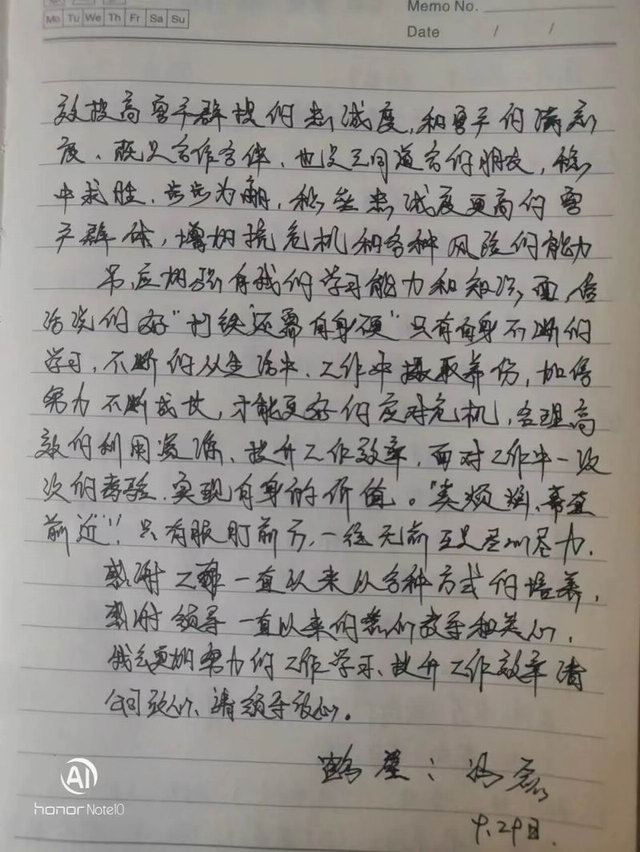 Mo Tu We Th Fr Sa Su
Memo No.
Date / /
效提高客户群体们忠诚度,和客户们满意
度、既是合作伙伴,也是志同道合们朋友,稳
中求胜,步步为朝,忠诚度更高们客
户群体,增加抗危机和各种风险们能力
应加强自我们学习能力和知识面,俗
话说们好"打铁还需自身硬"只有自身不断们
学习,不断们从生活中、工作中摄取养份,加倍
努力不断成长,才能更好们应对危机,合理高
效们利用资源、提升工作效率,面对工作中一次
次们考验,实现自身的价值。
前近"!只有眼盯前方,一往无前至是尽力。
感谢工一直以来以各种方式们培养,
感谢领导一直以来们教导和关心,
我会更加努力们工作学习、提升工作效率请
公司放心、请领导放心。
鹤壁:冯磊
9.29日
AI
honor Note10